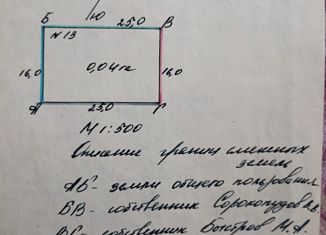 Ю
Б 25,0 В
№13
16,0 0,04 га 16,0
А 25,0 Г
М 1:500
Описание границ смежных
земель
АБ - земли общего пользования
БВ - собственник Сорокопудов В.В.
ВГ - собственник Быстров М.А.